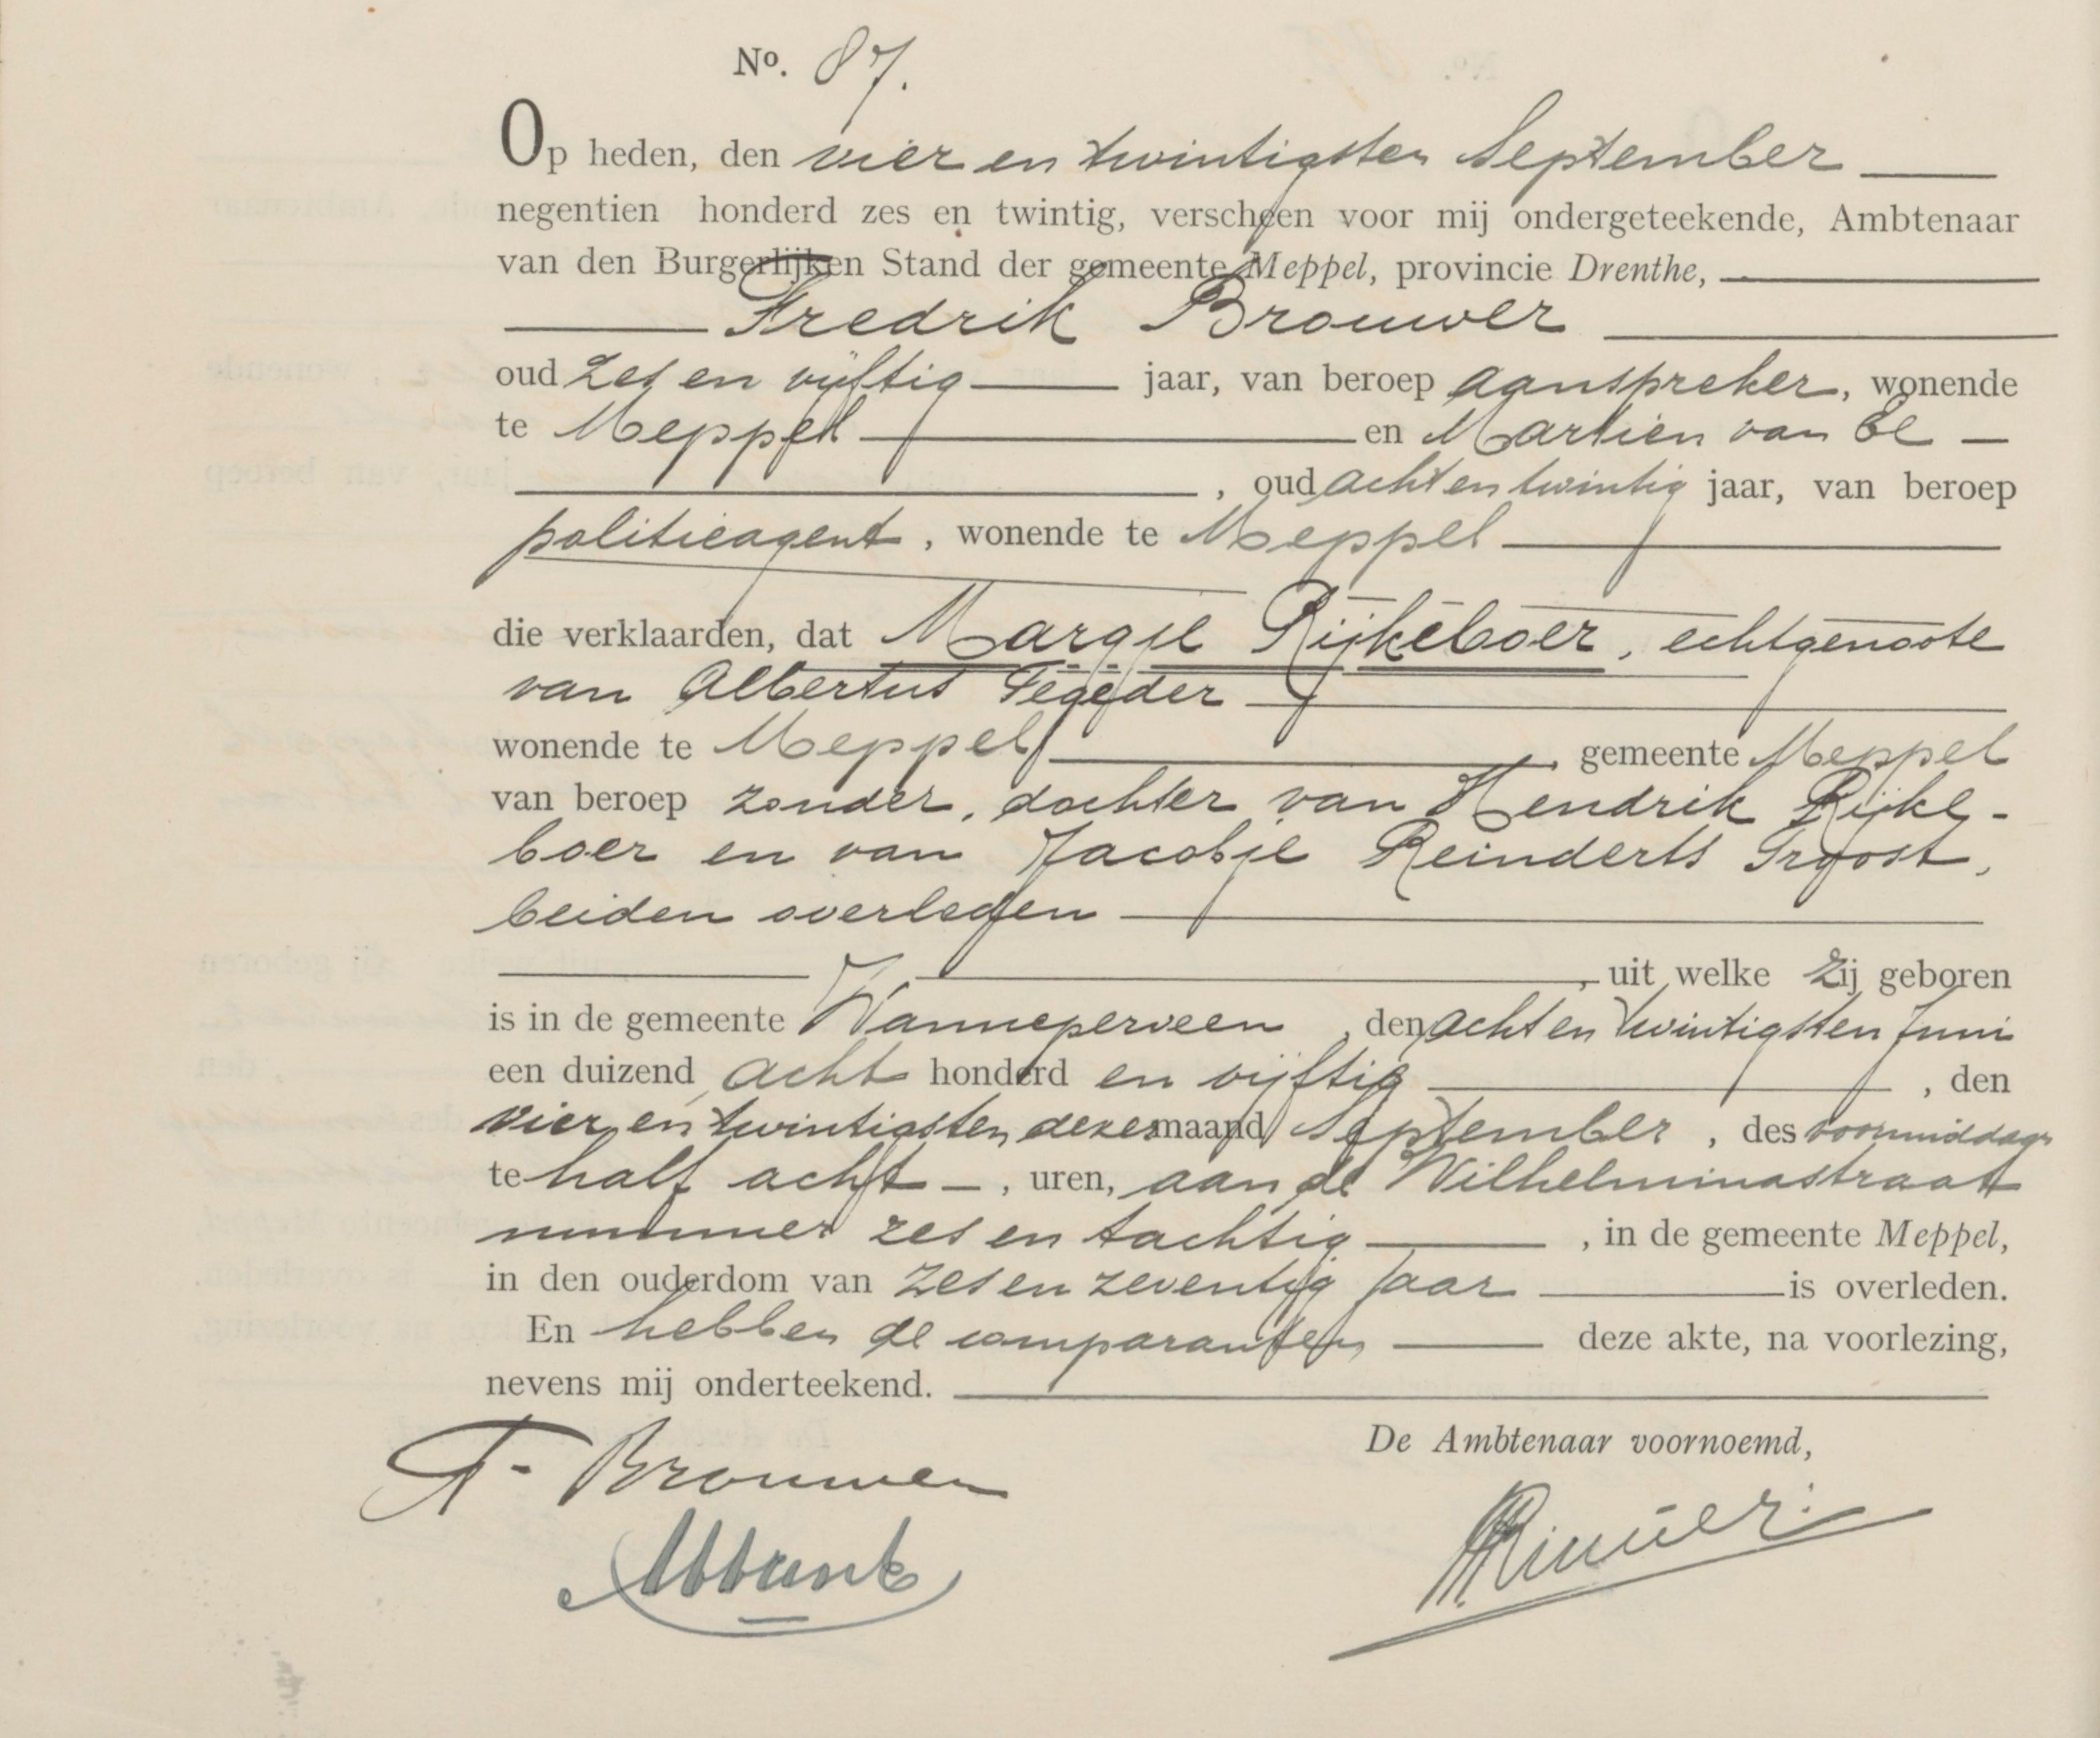 No. 87.
Op heden, den vier en twintigsten September
negentien honderd zes en twintig, verscheen voor mij ondergeteekende, Ambtenaar
van den Burgerlijken Stand der gemeente Meppel, provincie Drenthe,
Fredrik Brouwer
oud zes en vijftig jaar, van beroep aanspreker, wonende
te Meppel en Martien van Ee
, oud acht en twintig jaar, van beroep
politieagent, wonende te Meppel
die verklaarden, dat Margje Rijkeboer, echtgenoote
van Albertus Tegeder
wonende te Meppel, gemeente Meppel
van beroep zonder, dochter van Hendrik Rijke-
boer en van Jacobje Reinderts Troost,
beiden overleden
, uit welke zij geboren
is in de gemeente Wanneperveen, den acht en twintigsten Juni
een duizend acht honderd en vijftig, den
vier en twintigsten dezer maand September, des voormiddags
te half acht, uren, aan de Wilhelminastraat
nummer zes en tachtig, in de gemeente Meppel,
in den ouderdom van zes en zeventig jaar is overleden.
En hebben de comparanten deze akte, na voorlezing,
nevens mij onderteekend.
De Ambtenaar voornoemd,
F. Brouwer